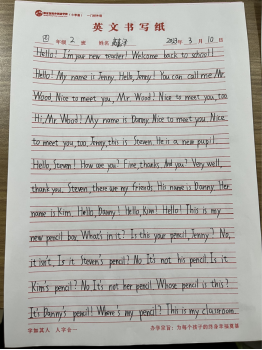 英文书写纸
四 年级 2 班 姓名 2023 年 3 月 10 日
Hello! I'm your new teacher! Welcome back to school!
Hello! My name is Jenny. Hello, Jenny! You can call me Mr.
Wood. Nice to meet you, Mr Wood! Nice to meet you, too.
Hi, Mr Wood! My name is Danny. Nice to meet you. Nice
to meet you, too. Jenny, this is Steven. He is a new pupil.
Hello, Steven! How are you? Fine, thanks. And you? Very well,
thank you. Steven, there are my friends. His name is Danny. Her
name is Kim. Hello, Danny! Hello, Kim! Hello! This is my
new pencil box. What's in it? Is this your pencil, Jenny? No,
it isn't. Is it Steven's pencil? No. It's not his pencil. Is it
Kim's pencil? No. It's not her pencil. Whose pencil is this?
It's Danny's pencil! Where's my pencil? This is my classroom.